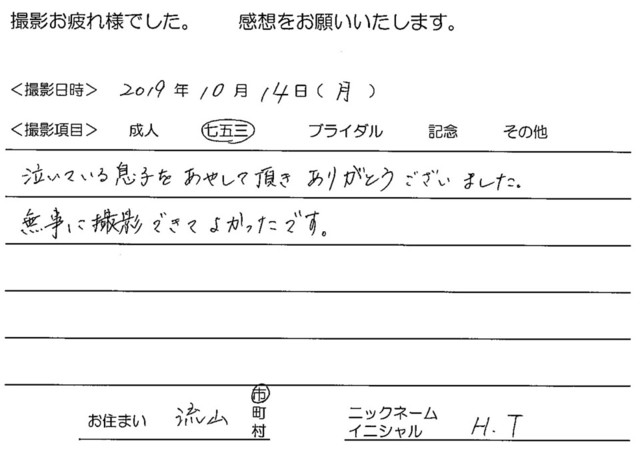 撮影お疲れ様でした。　感想をお願いいたします。
<撮影日時>　2019年10月14日(月)
<撮影項目>　成人　七五三　ブライダル　記念　その他
泣いている息子を あやして頂き ありがとうございました。
無事に撮影できてよかったです。
お住まい　流山　市町村　ニックネーム イニシャル　H.T